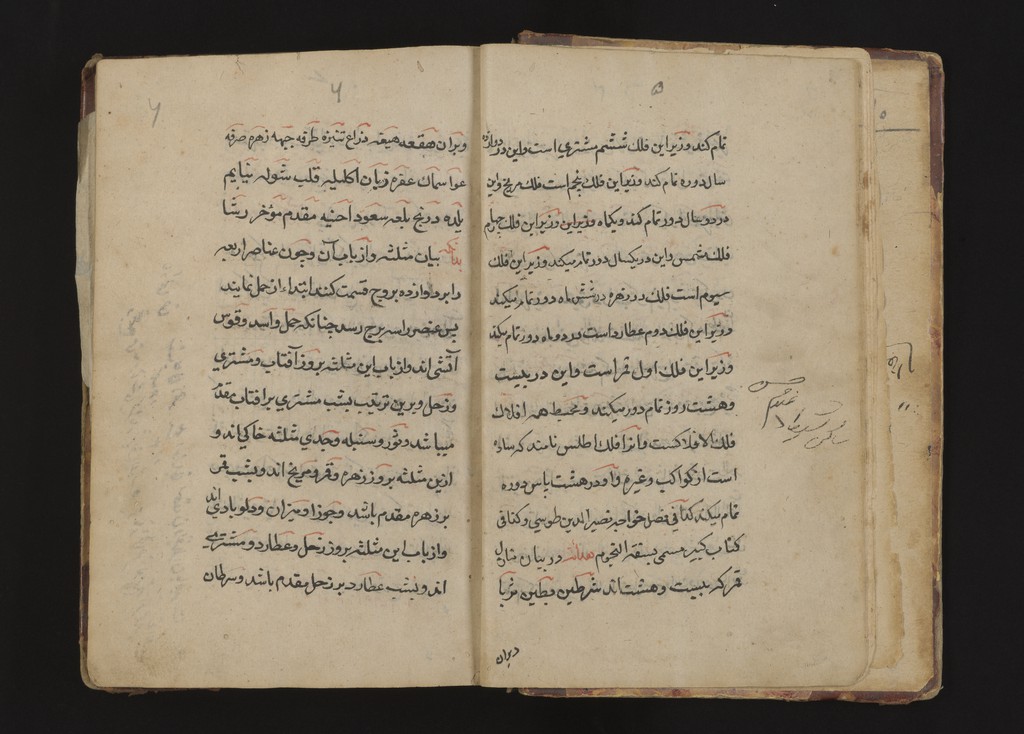 ۵
تمام کند وزیر این فلک ششم مشتری است واین در دوازده
سال دوره تمام کند وزیر این فلک پنجم است فلک مریخ واین
در دو سال دور تمام کند ویکماه وزیر این فلک چهارم
فلک شمس واین در یکسال دور تمام میکند وزیر این فلک
سیوم است فلک زهره در شش ماه دور تمام میکند
وزیر این فلک دوم عطارد است در دو ماه دور تمام میکند
وزیر این فلک اول قمر است واین در بیست
وهشت روز تمام دور میکند ومحیط همه افلاک
فلک الافلاکست وانرا فلک اطلس نامند که ساده
است از کواکب وغیره واو در هشت پاس دوره
تمام میکند کذا فی فصل خواجه نصیر الدین طوسی وکذا فی
کتاب کبیر مسمی بستة النجوم در بیان منازل
قمر که بیست وهشت اند شرطین وبطین ثریا
دبران
۶
۶
وبران هقعه هنعه ذراع نثره طرفه جبهه زهره صرفه
عوا سماک غفره زبان اکلیله قلب شوله نیایم
بلده در نج بلعه سعود اخبیه مقدم مؤخر رشا
بدانکه بیان مثلثه وارباب آن وچون عناصر اربعه
را بر دوازده بروج قسمت کنند ابتدا از حمل نمایند
پس عنصر را سه برج رسد چنانکه حمل واسد وقوس
آتشی اند وارباب این مثلثه بروز آفتاب ومشتری
وزحل وبرین ترتیب بشب مشتری بر افتاب مقدم
میباشد وثور وسنبله وجدی مثلثه خاکی اند و
ازین مثلثه بروز زهره وقمر ومریخ اند وبشب قمر
بر زهره مقدم باشد وجوزا ومیزان ودلو بادی اند
وارباب این مثلثه بروز زحل وعطارد ومشتری
اند وبشب عطارد بر زحل مقدم باشد وسرطان